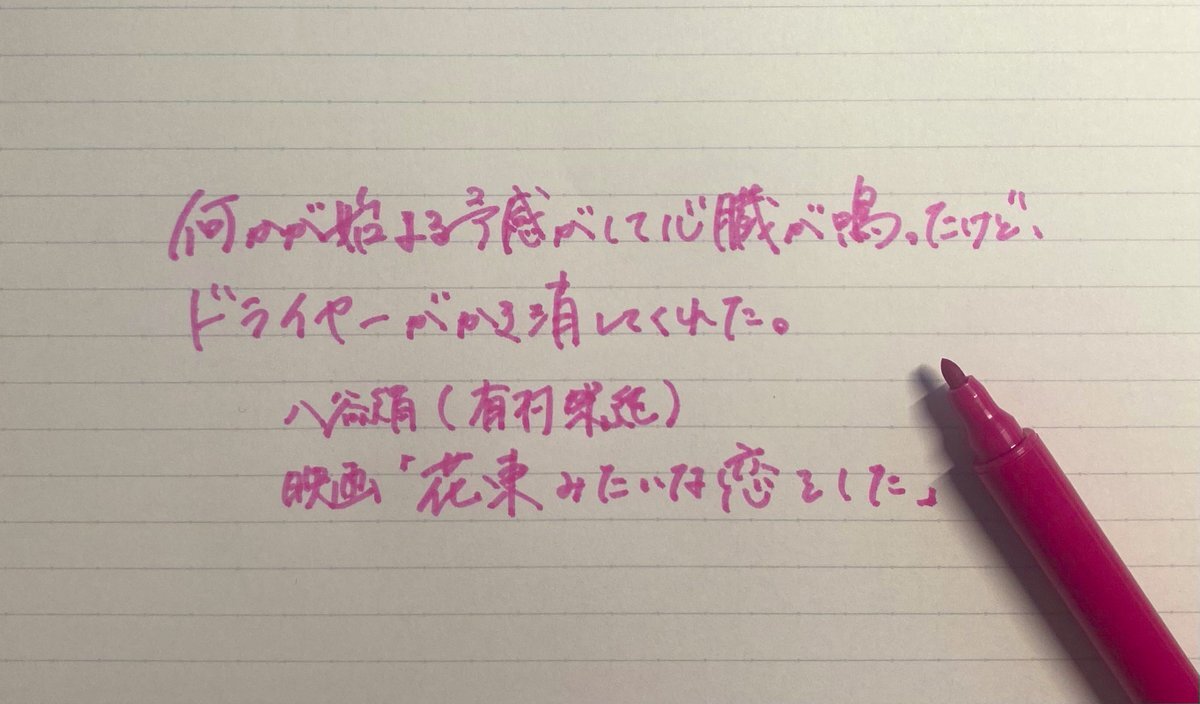 何かが始まる予感がして心臓が鳴ったけど、
ドライヤーがかき消してくれた。
八谷絹（有村架純）
映画「花束みたいな恋をした」